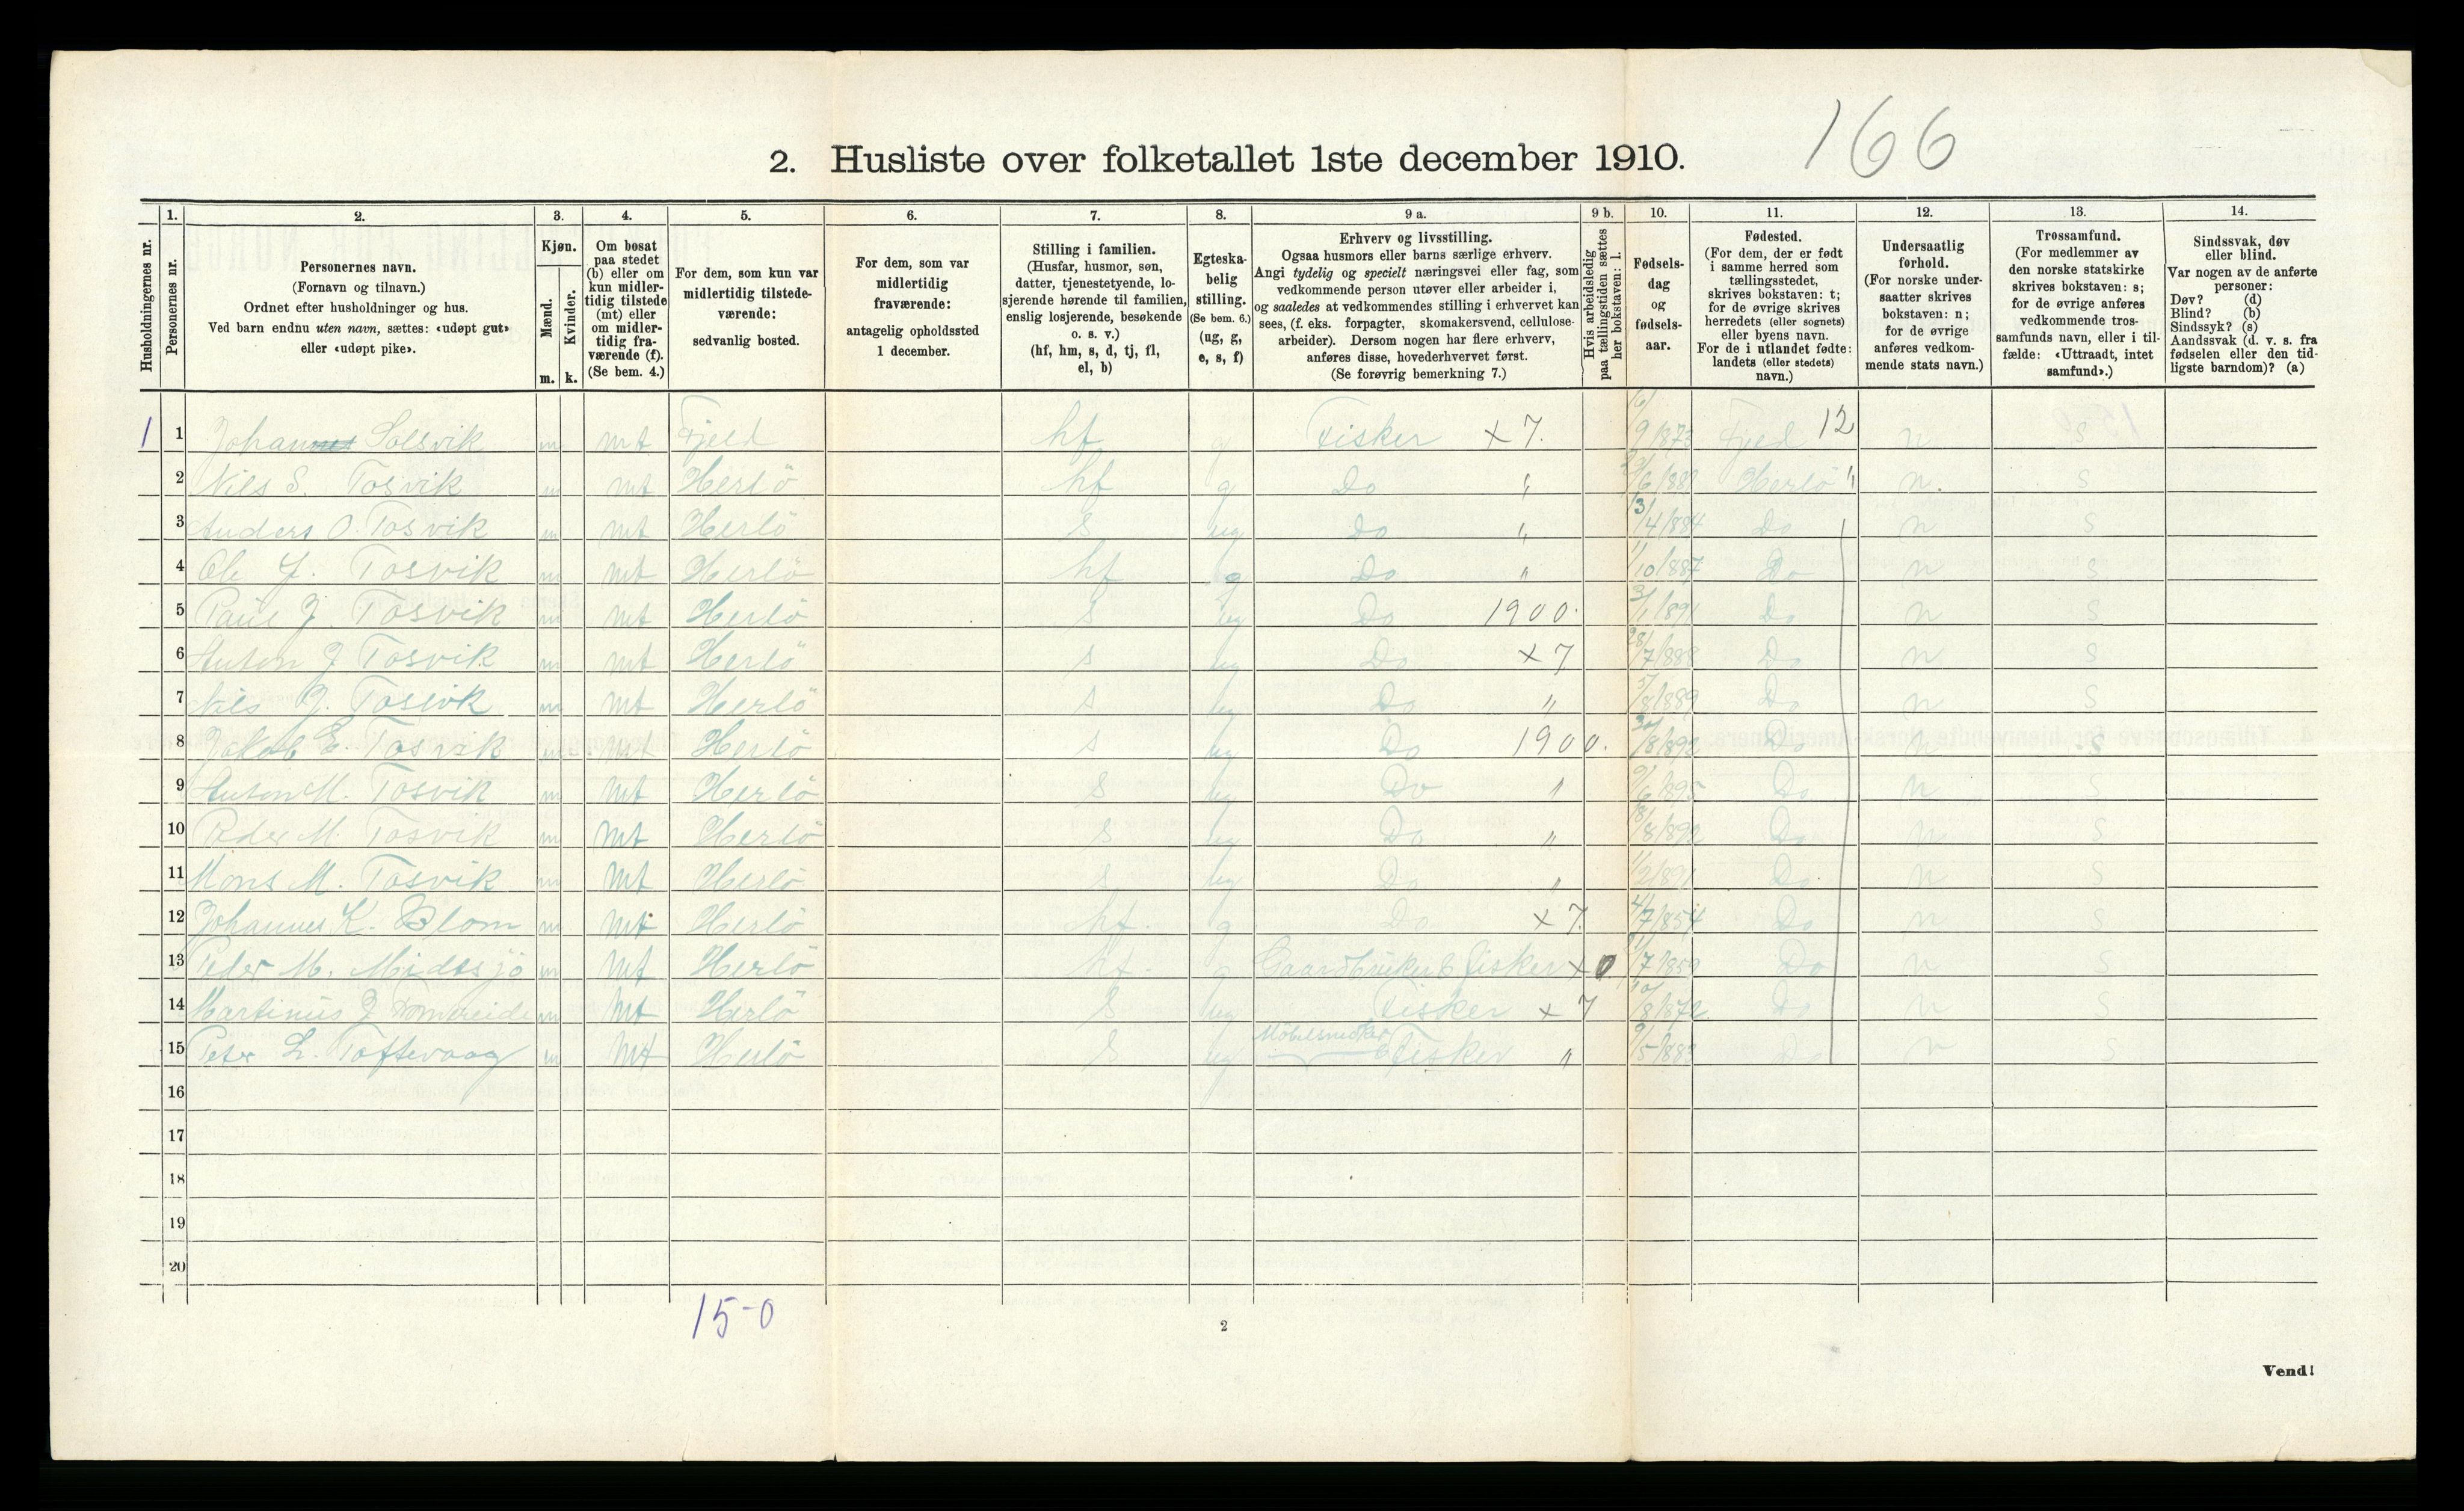 166
2. Husliste over folketallet 1ste december 1910.
Husholdningernes nr.
1. Personernes nr.
2. Personernes navn.
(Fornavn og tilnavn.)
Ordnet efter husholdninger og hus.
Ved barn endnu uten navn, sættes: «udøpt gut»
eller «udøpt pike».
3. Kjøn.
Mænd. Kvinder.
m. k.
4. Om bosat
paa stedet
(b) eller om
kun midler-
tidig tilstede
(mt) eller
om midler-
tidig fra-
værende (f).
(Se bem. 4.)
5. For dem, som kun var
midlertidig tilstede-
værende:
sedvanlig bosted.
6. For dem, som var
midlertidig
fraværende:
antagelig opholdssted
1 december.
7. Stilling i familien.
(Husfar, husmor, søn,
datter, tjenestetyende, lo-
sjerende hørende til familien,
enslig losjerende, besøkende
o. s. v.)
(hf, hm, s, d, tj, fl,
el, b)
8. Egteska-
belig
stilling.
(Se bem. 6.)
(ug, g,
e, s, f)
9 a. Erhverv og livsstilling.
Ogsaa husmors eller barns særlige erhverv.
Angi tydelig og specielt næringsvei eller fag, som
vedkommende person utøver eller arbeider i,
og saaledes at vedkommendes stilling i erhvervet kan
sees, (f. eks. forpagter, skomakersvend, cellulose-
arbeider). Dersom nogen har flere erhverv,
anføres disse, hovederhvervet først.
(Se forøvrig bemerkning 7.)
9 b. Hvis arbeidsledig
paa tællingstiden sættes
her bokstaven: l.
10. Fødsels-
dag
og
fødsels-
aar.
11. Fødested.
(For dem, der er født
i samme herred som
tællingsstedet,
skrives bokstaven: t;
for de øvrige skrives
herredets (eller sognets)
eller byens navn.
For de i utlandet fødte:
landets (eller stedets)
navn.)
12. Undersaatlig
forhold.
(For norske under-
saatter skrives
bokstaven: n;
for de øvrige
anføres vedkom-
mende stats navn.)
13. Trossamfund.
(For medlemmer av
den norske statskirke
skrives bokstaven: s;
for de øvrige anføres
vedkommende tros-
samfunds navn, eller i til-
fælde: «Uttraadt, intet
samfund».)
14. Sindssvak, døv
eller blind.
Var nogen av de anførte
personer:
Døv? (d)
Blind? (b)
Sindssyk? (s)
Aandssvak (d. v. s. fra
fødselen eller den tid-
ligste barndom)? (a)
1 1 Johannes Solsvik m mt Fjeld hf g Fisker x 7. 9/873 Fjed 12 n s
2 Nils S. Tosvik m mt Herlö hf g Do " Herlö " n. s
3 Anders O. Tosvik m mt Herlö s ug Do " 4/884 Do n s
4 Ole J. Tosvik m mt Herlö hf g Do " 1/10/887 Do n s
5 Paul J. Tosvik m mt Herlö s ug Do 1900. 1/891 Do n s
6 Anton J Tosvik m mt Herlö s ug Do x 7 28/7/888 Do n s
7 Nils J. Tosvik m mt Herlö s ug Do " 8/889 Do n s
8 Jakob E. Tosvik m mt Herlö s ug Do 1900. 8/892 Do n s
9 Anton M. Tosvik m mt Herlö s ug Do " 9/6/895 Do n s
10 Peder M. Tosvik m mt Herlö s ug Do " 8/892 Do n s
11 Mons M. Tosvik m mt Herlö s ug Do " 1/2/891 Do n s
12 Johannes K. Blom m mt Herlö hf. g Do x 7. 4/7/854 Do n s
13 Peder M. Midtsjö m mt Herlö hf. g Gaardbruker & fisker x 0 7/859 Do n s
14 Martinus J m mt Herlö s ug Fisker x 7 10/8/872 Do n s
15 Peter L. Toftevaag m mt Herlö s ug Möbelsnedker & Fisker " 9/5/883 Do n s
16
17
18
19
20
15-0
2
Vend!